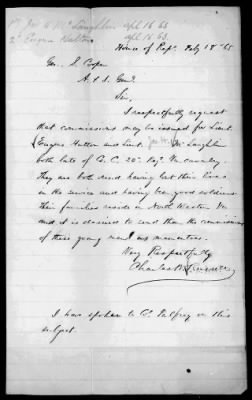 1st Jno H McLaughlin apl 16 63
2d Eugene Hutton apl 16. 63.
House of Reps. Feby 18" 65
Gen. S. Cooper
A & I. Genl.
Sir,
I respectfully request
that commissions may be issued for Lieut.
Eugene Hutton and Lieut. Jno H. McLaughlin
both late of Co. C. 20" Regt. Va cavalry.
They are both dead having lost their lives
in the service and having been good soldiers
Their families reside in North Western Va
and it is desired to send them the commissions
of these young men as mementoes.
Very Respectfully
Charles
I have spoken to Col. Palfrey on this
subject.